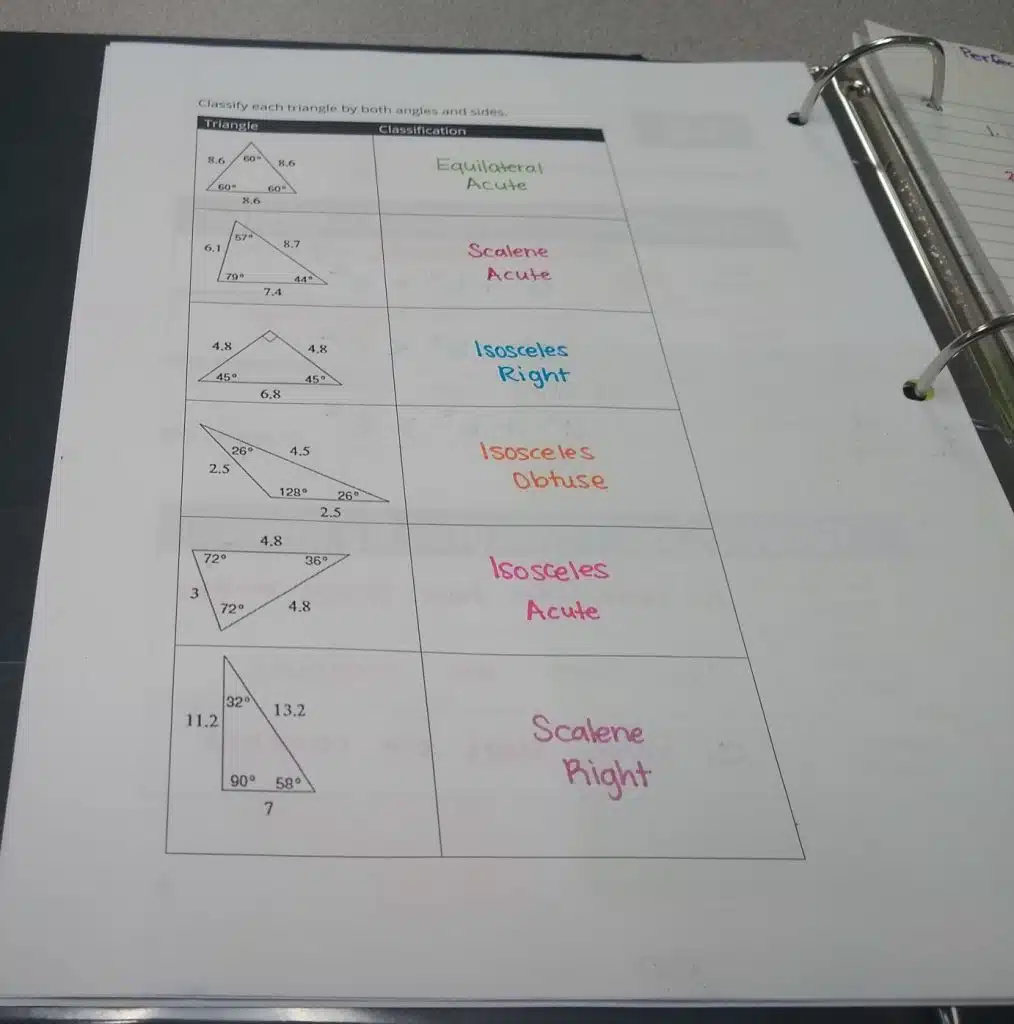 Classify each triangle by both angles and sides.
Triangle Classification
8.6 60° 8.6
60° 60°
8.6
Equilateral
Acute
57° 8.7
6.1
79° 44°
7.4
Scalene
Acute
4.8 4.8
45° 45°
6.8
Isosceles
Right
26° 4.5
2.5
128° 26°
2.5
Isosceles
Obtuse
4.8
72° 36°
3
72° 4.8
Isosceles
Acute
32° 13.2
11.2
90° 58°
7
Scalene
Right
1.